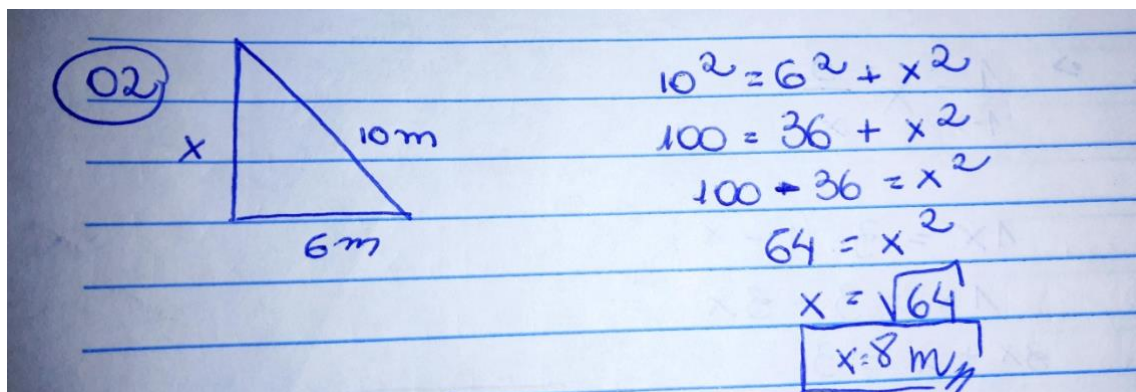 02
x
10 m
6 m
10² = 6² + x²
100 = 36 + x²
100 - 36 = x²
64 = x²
x = √64
x = 8 m